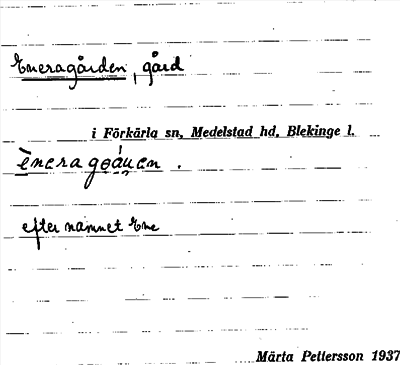 Eneragården, gård
i Förkärla sn, Medelstad hd, Blekinge l.
èneragǫáu̯en.
efter namnet Ene
Märta Pettersson 1937